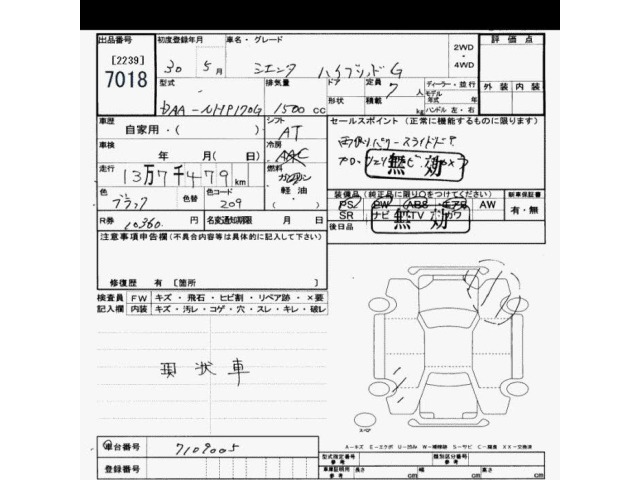 出品番号 初度登録年月 車名・グレード 2WD 評価点
[2239] 30 5月 シエンタ ハイブリッドG ・
7018 4WD
型式 排気量 ドア 定員 ディーラー・並行 外装 内装
7人 モデル
DAA-NHP170G 1500 cc 形状 積載 年式 年
kg ハンドル 左・右
車歴 シフト セールスポイント(正常に機能するものに限ります)
自家用・( ) AT 両側パワースライドドア
車検 冷房
年 月(日) AAC 無効
走行 燃料
13万7千479km ガソリン
色 色替 色コード 軽油 装備品(純正品に限り○をつけてください) 新車保証書
ブラック 209 ・ PS PW ABS エアB AW 有・無
R券 10360 名変通知期限 月 日 SR ナビ TV カワ
無効
注意事項申告欄(不具合内容等は具体的に記入して下さい) 後日品
修復歴 有 [箇所 ]
検査員 FW キズ・飛石・ヒビ割・リペア跡・×要
記入欄 内装 キズ・汚レ・コゲ・穴・スレ・キレ・破レ
現状車
車台番号 7109005
A−キズ E−エクボ U−凹み W−補修跡 S−サビ C−腐食 XX−交換済
型式指定番号 類別区分番号
参考 参考
登録番号 車庫証明用 長さ 幅 高さ
参考 cm cm cm